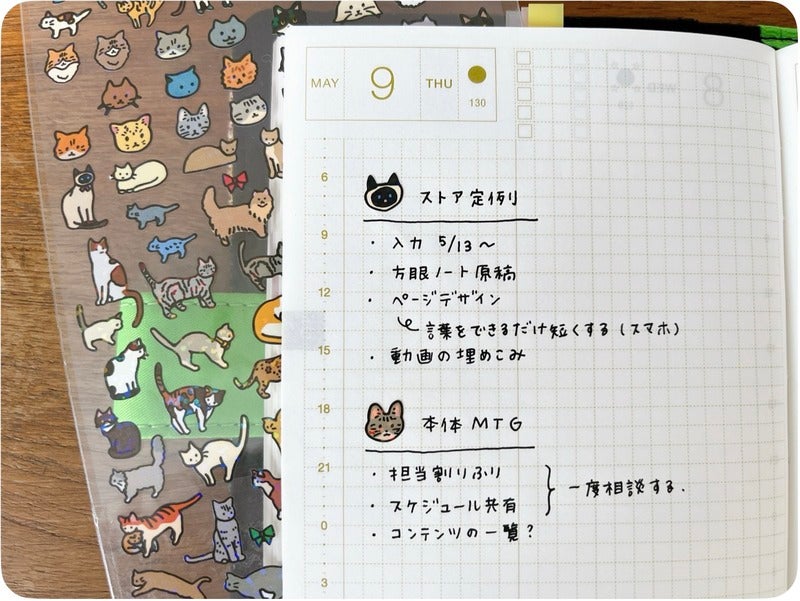 MAY 9 THU
130
6
ストア定例
9
・入力 5/13〜
・方眼ノート原稿
12
・ページデザイン
言葉をできるだけ短くする(スマホ)
15
・動画の埋めこみ
18
本体MTG
21
・担当割りふり
・スケジュール共有
一度相談する.
0
・コンテンツの一覧?
3